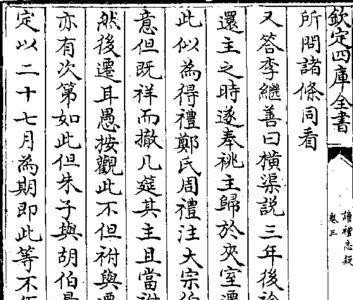 欽定四庫全書
讀禮志疑
卷三
所問諸條同看
又答李繼善曰橫渠說三年後祫
還主之時遂奉祧主歸於夾室遷
此似為得禮鄭氏周禮注大宗伯
意但既祥而撤几筵其主且當祔
然後遷耳愚按觀此不但祔與遷
亦有次第如此但朱子與胡伯量
定以二十七月為期即此等不